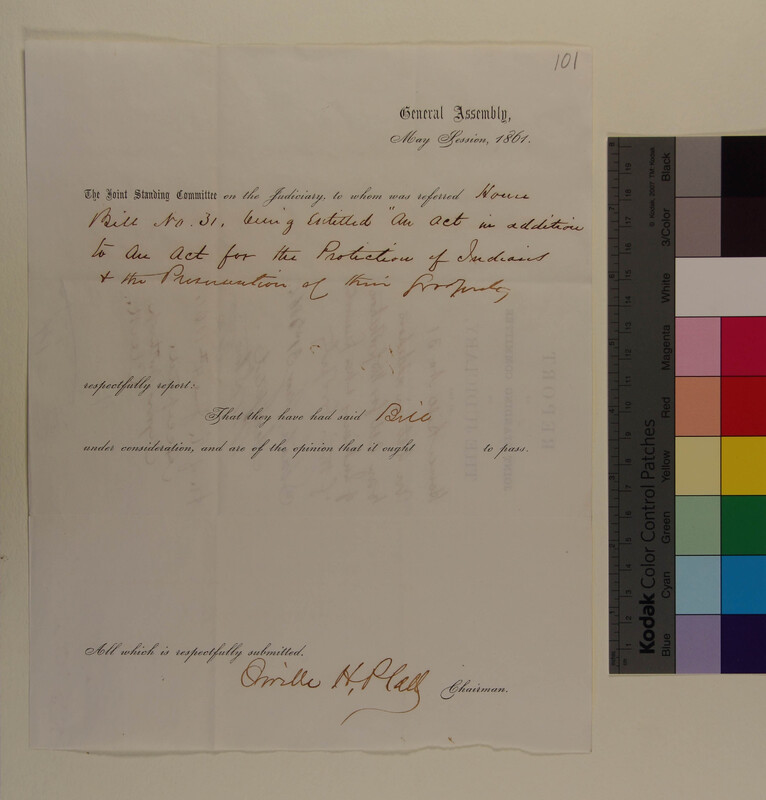 101
General Assembly,
May Session, 1861.
The Joint Standing Committee on the Judiciary, to whom was referred House
Bill No. 31, being Entitled "An act in addition
to An Act for the Protection of Indians
& the Preservation of their Property
respectfully report:
That they have had said Bill
under consideration, and are of the opinion that it ought to pass.
All which is respectfully submitted.
Orville H. Platt Chairman.
© Kodak, 2007 TM: Kodak
Kodak Color Control Patches
Blue Cyan Green Yellow Red Magenta White 3/Color Black
REPORT
THE JUDICIARY